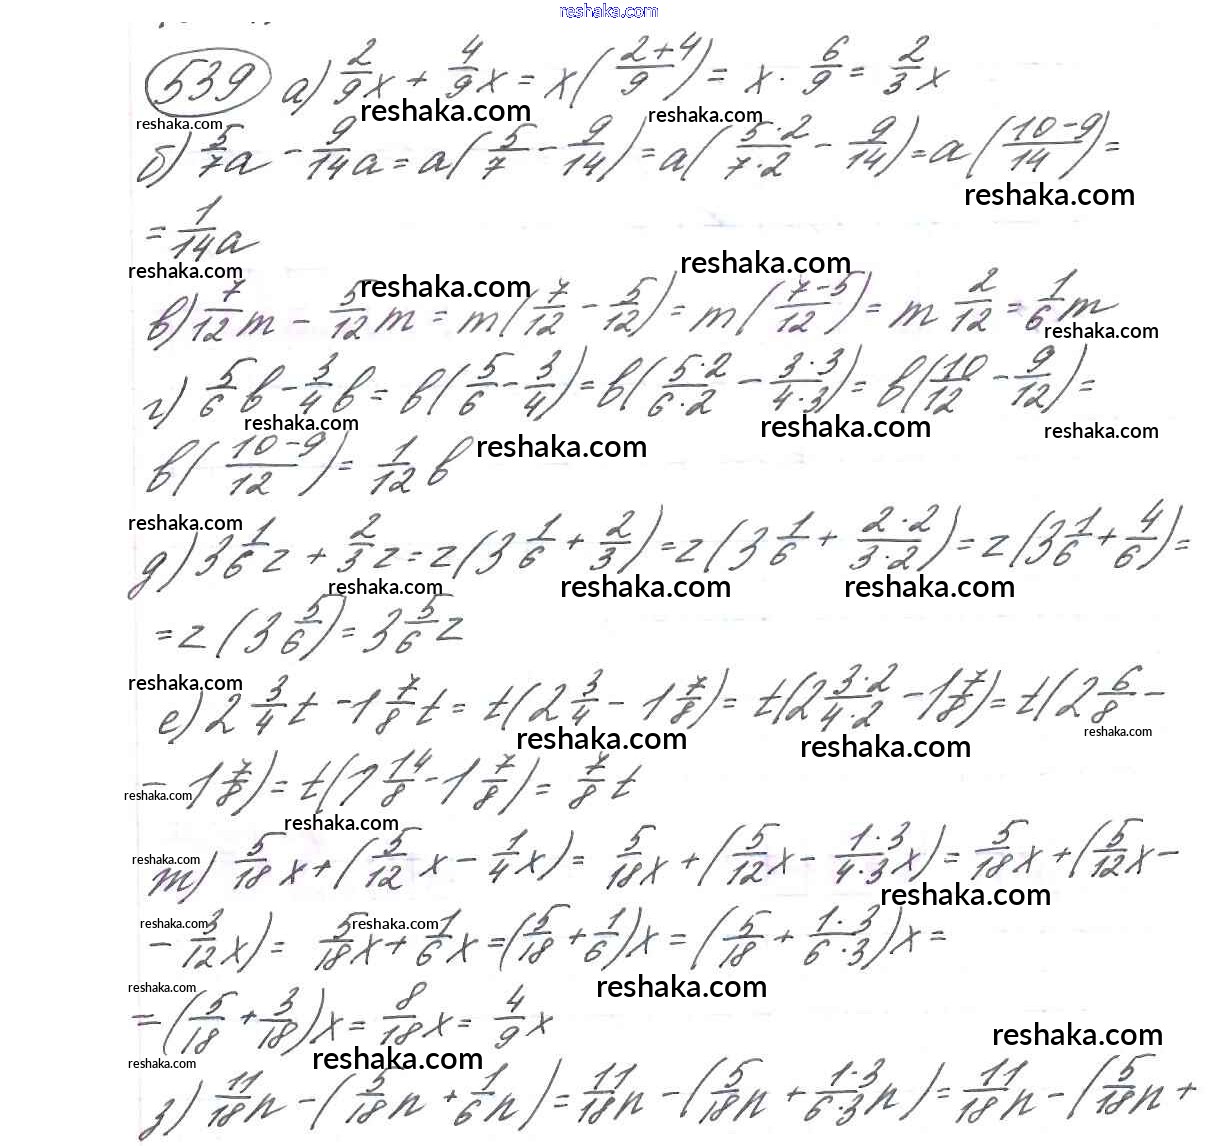 reshaka.com
539 а) 2/9 x + 4/9 x = x((2+4)/9) = x · 6/9 = 2/3 x
reshaka.com reshaka.com reshaka.com
б) 5/7 a - 9/14 a = a(5/7 - 9/14) = a((5·2)/(7·2) - 9/14) = a((10-9)/14) =
reshaka.com
= 1/14 a
reshaka.com reshaka.com reshaka.com
в) 7/12 m - 5/12 m = m(7/12 - 5/12) = m((7-5)/12) = m 2/12 = 1/6 m
reshaka.com
г) 5/6 b - 3/4 b = b(5/6 - 3/4) = b((5·2)/(6·2) - (3·3)/(4·3)) = b(10/12 - 9/12) =
reshaka.com reshaka.com reshaka.com
b((10-9)/12) = 1/12 b
reshaka.com
reshaka.com
д) 3 1/6 z + 2/3 z = z(3 1/6 + 2/3) = z(3 1/6 + (2·2)/(3·2)) = z(3 1/6 + 4/6) =
reshaka.com reshaka.com reshaka.com
= z(3 5/6) = 3 5/6 z
reshaka.com
е) 2 3/4 t - 1 7/8 t = t(2 3/4 - 1 7/8) = t(2 (3·2)/(4·2) - 1 7/8) = t(2 6/8 -
reshaka.com reshaka.com reshaka.com
- 1 7/8) = t(1 14/8 - 1 7/8) = 7/8 t
reshaka.com
reshaka.com
reshaka.com
ж) 5/18 x + (5/12 x - 1/4 x) = 5/18 x + (5/12 x - (1·3)/(4·3) x) = 5/18 x + (5/12 x -
reshaka.com
reshaka.com reshaka.com
- 3/12 x) = 5/18 x + 1/6 x = (5/18 + 1/6)x = (5/18 + (1·3)/(6·3))x =
reshaka.com reshaka.com
= (5/18 + 3/18)x = 8/18 x = 4/9 x
reshaka.com reshaka.com reshaka.com
з) 11/18 n - (5/18 n + 1/6 n) = 11/18 n - (5/18 n + (1·3)/(6·3) n) = 11/18 n - (5/18 n +